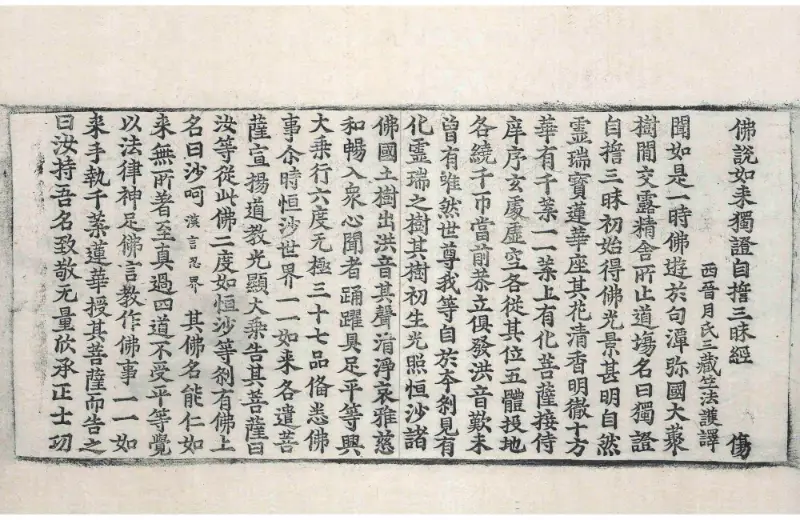 佛說如来獨證自誓三昧經　傷
西晉月氏三藏竺法護譯
聞如是一時佛遊於句潭弥國大藂
樹閒交露精舍所止道場名曰獨證
自誓三昧初始得佛光景甚明自然
靈瑞寶蓮華座其花清香明徹十方
華有千葉一一葉上有化菩薩接侍
庠序玄處虛空各從其位五體投地
各繞千帀當前恭立俱發洪音歎未
曾有唯然世尊我等自於本剎見有
化靈瑞之樹其樹初生光照恒沙諸
佛國土樹出洪音其聲清淨哀雅慈
和暢入衆心聞者踊躍具足平等興
大乘行六度无極三十七品俻悉佛
事尒時恒沙世界一一如來各遣菩
薩宣揚道教光顯大乘告其菩薩曰
汝等從此佛二度如恒沙等剎有佛上
名曰沙呵 漢言忍界 其佛名能仁如
来無所著至真過四道不受平等覺
以法律神足佛言教作佛事一一如
来手執千葉蓮華授其菩薩而告之
曰汝持吾名致敬无量欣承正士功